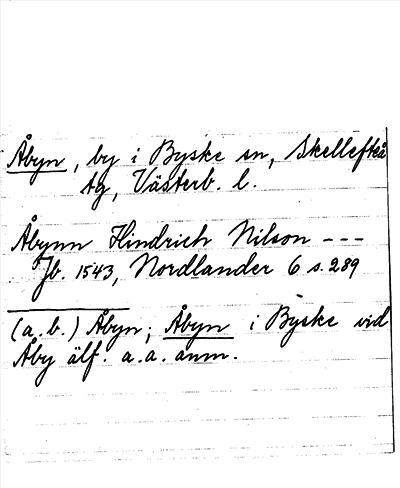 Åbyn, by i Byske sn, Skellefteå
tg, Västerb. l.
Åbynn Hindrich Nilson ---
Jb. 1543, Nordlander 6 s. 289
(a. b.) Åbyn; Åbyn i Byske vid
Åby älf. a. a. anm.